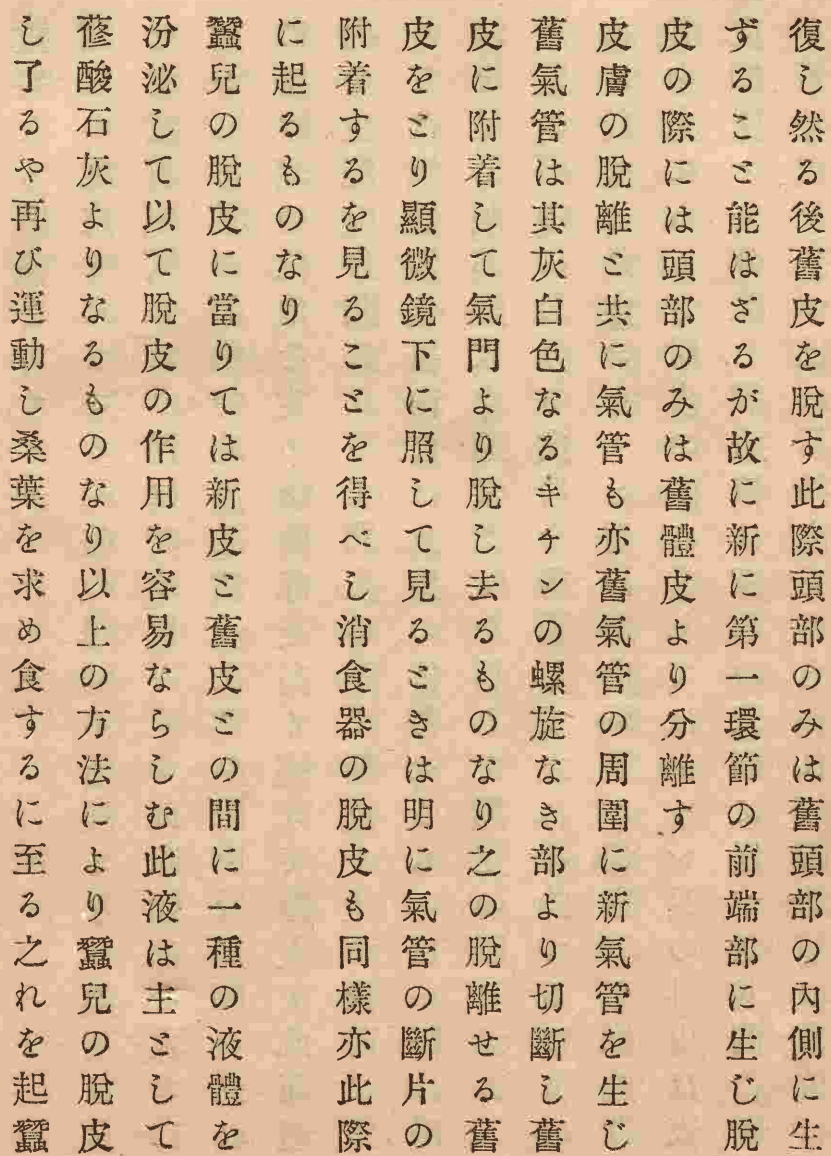 復し然る後舊皮を脫す此際頭部のみは舊頭部の內側に生
ずること能はざるが故に新に第一環節の前端部に生じ脫
皮の際には頭部のみは舊體皮より分離す
皮膚の脫離と共に氣管も亦舊氣管の周圍に新氣管を生じ
舊氣管は其灰白色なるキチンの螺旋なき部より切斷し舊
皮に附着して氣門より脫し去るものなり之の脫離せる舊
皮をとり顯微鏡下に照して見るときは明に氣管の斷片の
附着するを見ることを得べし消食器の脫皮も同樣亦此際
に起るものなり
蠶兒の脫皮に當りては新皮と舊皮との間に一種の液體を
汾泌して以て脫皮の作用を容易ならしむ此液は主として
蓚酸石灰よりなるものなり以上の方法により蠶兒の脫皮
し了るや再び運動し桑葉を求め食するに至る之れを起蠶